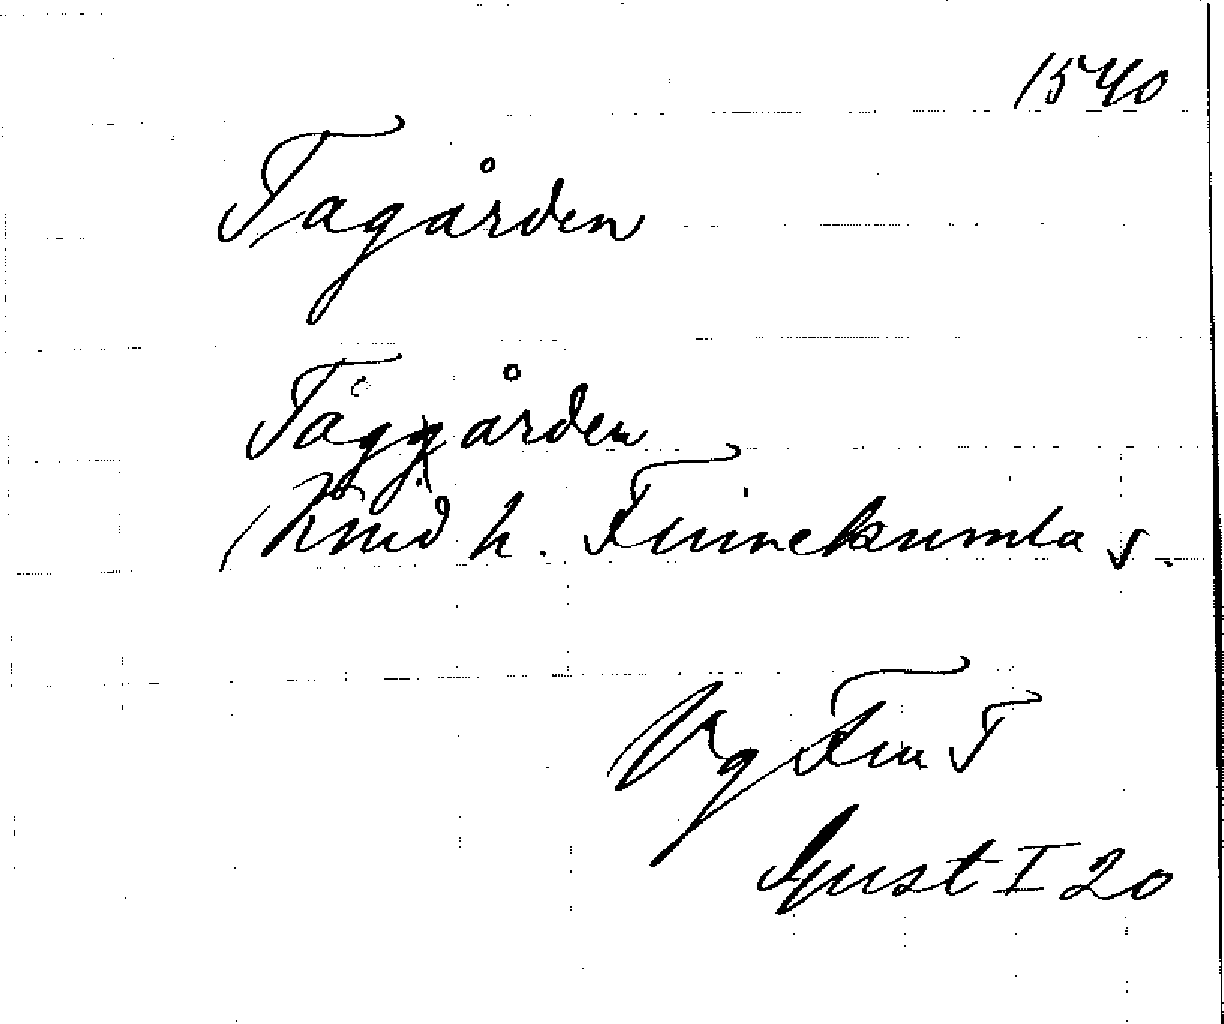 1540
Tagården
Tåggården
Kind h. Finnekumla s.
Vg Fin T
Gust I 20